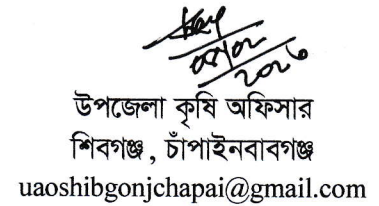 উপজেলা কৃষি অফিসার
শিবগঞ্জ , চাঁপাইনবাবগঞ্জ
uaoshibgonjchapai@gmail.com